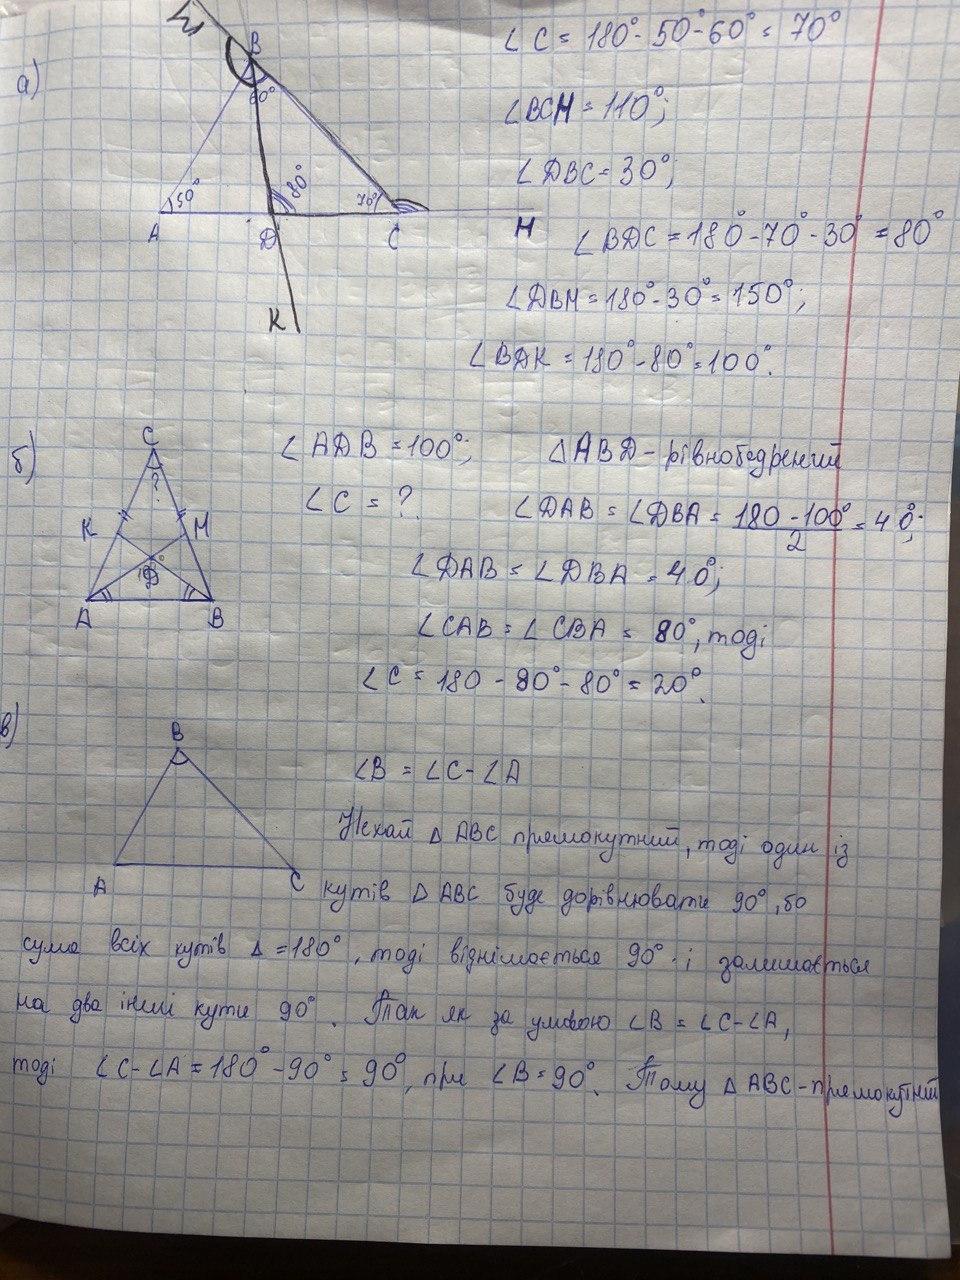 а)
М
В
60°
50°
80°
70°
А
D
С
Н
К
∠С = 180° - 50° - 60° = 70°
∠ВСН = 110°;
∠DBC = 30°;
∠BDC = 180° - 70° - 30° = 80°
∠DBM = 180° - 30° = 150°;
∠BDK = 180° - 80° = 100°.
б)
С
?
К
М
D
А
В
∠ADB = 100°;
∠С = ?
△ABD - рівнобедрений
∠DAB = ∠DBA = (180 - 100°)/2 = 40°;
∠DAB = ∠DBA = 40°;
∠CAB = ∠CBA = 80°, тоді
∠С = 180 - 80° - 80° = 20°.
в)
В
А
С
∠В = ∠С - ∠А
Нехай △ АВС прямокутний, тоді один із
кутів △ АВС буде дорівнювати 90°, бо
сума всіх кутів △ = 180°, тоді віднімається 90° і залишається
на два інші кути 90°. Так як за умовою ∠В = ∠С - ∠А,
тоді ∠С - ∠А = 180° - 90° = 90°, при ∠В = 90°. Тому △ АВС - прямокутний